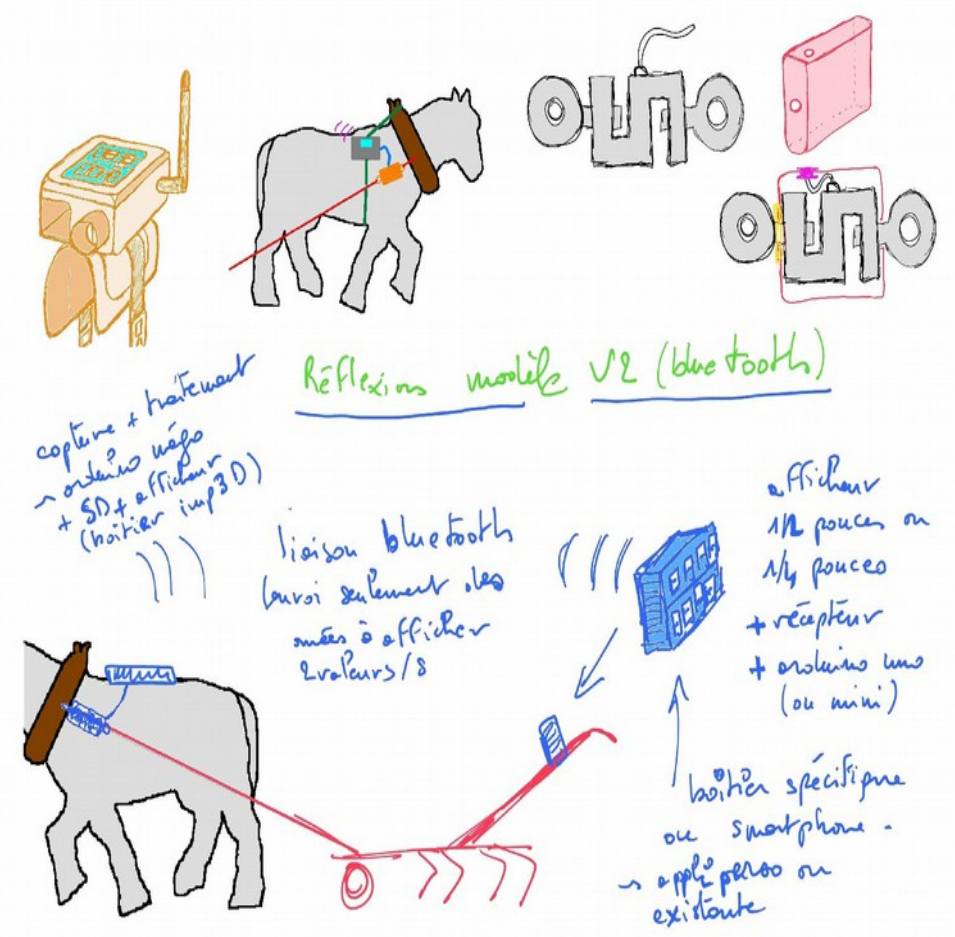 Réflexions modèle V2 (bluetooth)
capteur + traitement
~ arduino méga
+ SD + afficheur
(boîtier imp 3D)
liaison bluetooth
(envoi seulement des
à afficher
2 valeurs/s
afficheur
1/2 pouces ou
1/4 pouces
+ récepteur
+ arduino uno
(ou mini)
boîtier spécifique
ou smartphone.
~ appli perso ou
existante